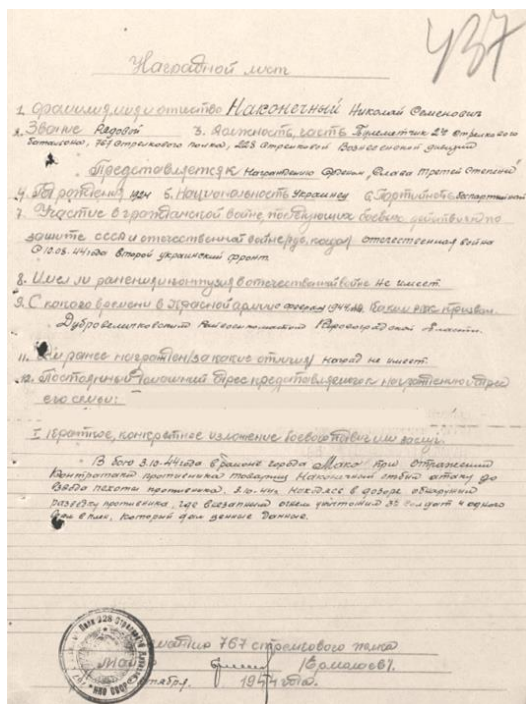 437
Наградной лист
1. Фамилия, имя и отчество Наконечный Николай Семенович
2. Звание Рядовой 3. Должность, часть 2го стрелкового
батальона, 767 стрелкового полка, 228 стрелковой Вознесенской дивизии
Представляется к награждению Орден "Слава Третей Степени"
4. Год рождения 1924 5. Национальность Украинец 6. Партийность беспартийный
7. Участие в гражданской войне, последующих боевых действиях по
защите СССР и отечественной войне отечественная война
с 10.08.44года второй украинский фронт.
8. Имел ли ранения и контузия в отечественной войне не имеет.
9. С какого времени в Красной армии 1944
Кировоградской области.
11. ранее награжден /за какие отличия наград не имеет.
12. Постоянный домашний адрес представляемого к награждению и адрес
его семьи:
I Краткое, конкретное изложение боевого подвига или заслуг.
В бою 3.10.44года в районе города Мако при отражении
контратаки противника товарищ Наконечный отбил атаку до
взвода пехоты противника. 3.10.44г. в дозоре обнаружил
разведку противника, где внезапным огнем уничтожил солдат и одного
взял в плен, который дал ценные данные.
767 стрелкового полка
Майор /Ермолаев/.
1944 года.